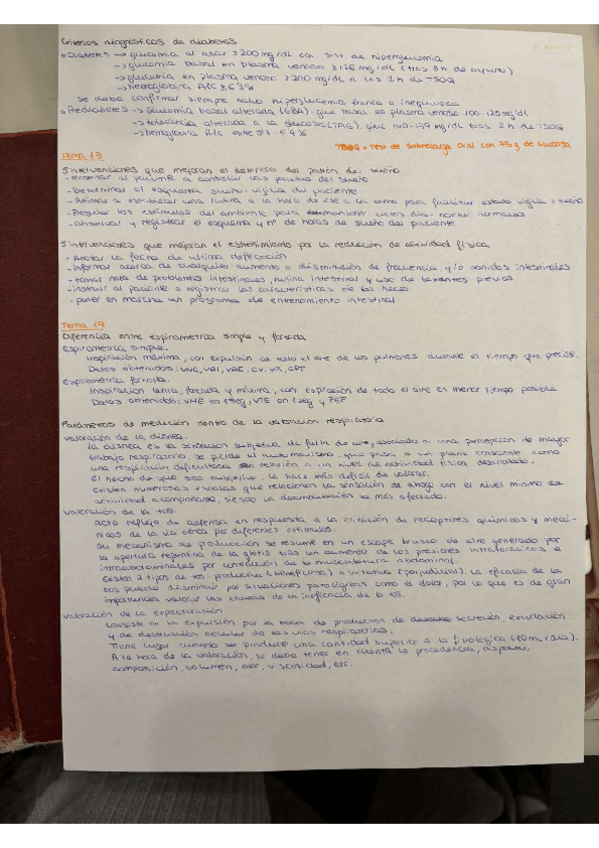 Criterios diagnósticos de diabetes
Diabetes → glucemia al azar ≥ 200 mg/dl con sint de hiperglucemia
→ glucemia basal en plasma venoso ≥ 126 mg/dl (tras 8h de ayuno)
→ glucemia en plasma venoso ≥ 200 mg/dl a las 2h de TSOG
→ hemoglobina A1C
se debe confirmar siempre salvo hiperglucemia franca o inequívoca
Prediabetes → glucemia basal alterada (GBA), gluc basal en plasma venoso 100-125 mg/dl
→ tolerancia alterada a la glucosa (TAG), gluc 140-199 mg/dl tras 2h de TSOG
→ hemoglobina A1C entre
TSOG = Test de Sobrecarga Oral con 75g de Glucosa
Tema 13
Intervenciones que mejoran el deterioro del patrón del sueño
- enseñar al paciente a controlar las pautas del sueño
- Determinar el esquema sueño-vigilia del paciente
- Animar a establecer una rutina a la hora de irse a la cama para facilitar estado vigilia > sueño
- Regular los estímulos del ambiente para ciclos día-noche normales
- observar y registrar el esquema y nº de horas de sueño del paciente
Intervenciones que mejoran el estreñimiento por la reducción de actividad física
- Anotar la fecha de última defecación
- Informar acerca de cualquier aumento o disminución de frecuencia y/o sonidos intestinales
- tomar nota de problemas intestinales, rutina intestinal y uso de laxantes previos
- instruir al paciente a registrar las características de las heces
- poner en marcha un programa de entrenamiento intestinal
Tema 19
Diferencia entre espirometría simple y forzada
Espirometría simple.
Inspiración máxima, con expulsión de todo el aire de los pulmones durante el tiempo que precise.
Datos obtenidos: VRI, CV, VR, CPT
Espirometría forzada.
Inspiración lenta, forzada y máxima, con espiración de todo el aire en menor tiempo posible
Datos obtenidos: en 1seg, en 1seg y PEF
Parámetros de medición dentro de la valoración respiratoria
Valoración de la disnea.
La disnea es la sensación subjetiva de falta de aire, asociada a una percepción de mayor
trabajo respiratorio. se pierde el automatismo, que pasa a un plano consciente como
una respiración dificultosa sin relación a un nivel de actividad física desarrollado.
El hecho de que sea subjetivo, la hace más difícil de valorar.
Existen numerosas escalas que relacionan la sensación de ahogo con el nivel mínimo de
actividad acompañante, siendo la deambulación la más afectada.
Valoración de la tos.
Acto reflejo de defensa en respuesta a la irritación de receptores químicos y mecá-
nicos de la vía aérea por diferentes estímulos.
Su mecanismo de producción se resume en un escape brusco de aire generado por
la apertura repentina de la glotis tras un aumento de las presiones intratorácicas e
intraabdominales por contracción de la musculatura abdominal.
Existen 2 tipos de tos: productiva (beneficiosa) e irritativa (perjudicial). La eficacia de la
tos puede disminuir por situaciones patológicas como el dolor, por lo que es de gran
importancia valorar las causas de la ineficacia de la tos.
Valoración de la expectoración.
Consiste en la expulsión por la boca de productos de secreción, exudación
y de destrucción celular de las vías respiratorias.
Tiene lugar cuando se produce una cantidad superior a la fisiológica
A la hora de la valoración, se debe tener en cuenta la procedencia,
composición, volumen, olor, viscosidad, etc.